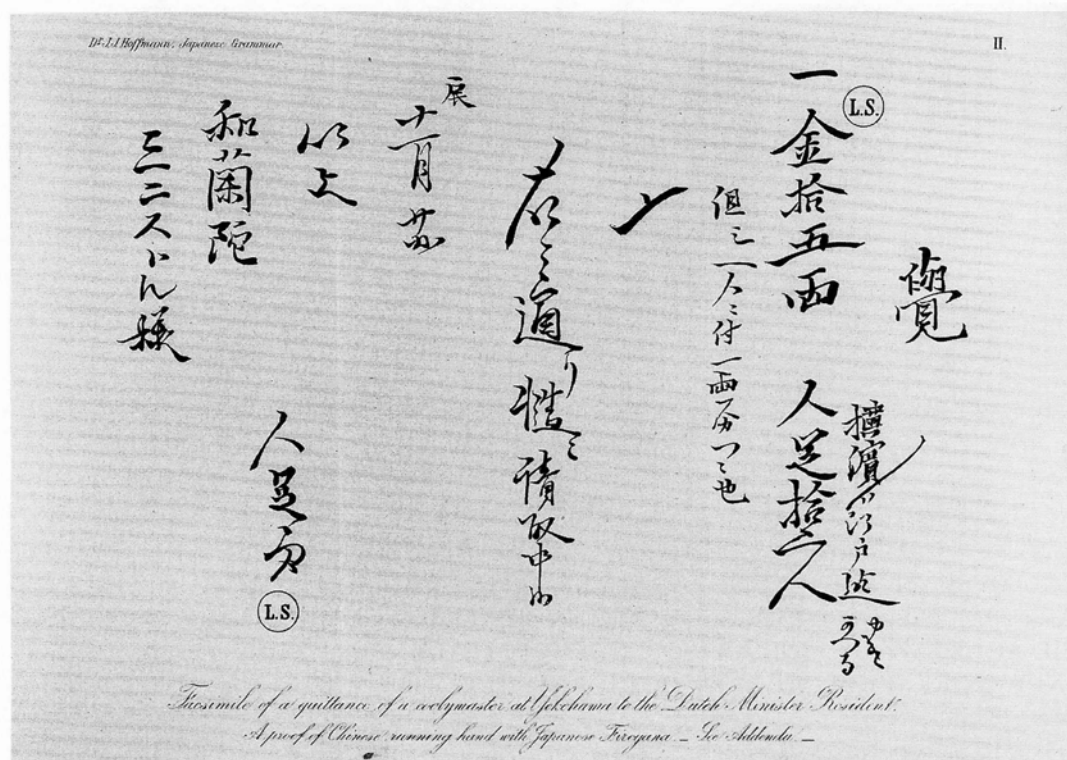 Dr. J.J. Hoffmann, Japanese Grammar.
II.
覺
横濱ゟ江戸迄
一金拾五両
L.S.
人足拾二人
但シ一人ニ付一両一分ツヽ也
〆
右之通り慥ニ請取申候
十一月廿
以上
和蘭陀
ミニストル様
人足方
L.S.
Facsimile of a quittance of a coolymaster at Yokohama to the Dutch Minister Resident.
A proof of Chinese running hand with Japanese Firogana. — See Addenda. —